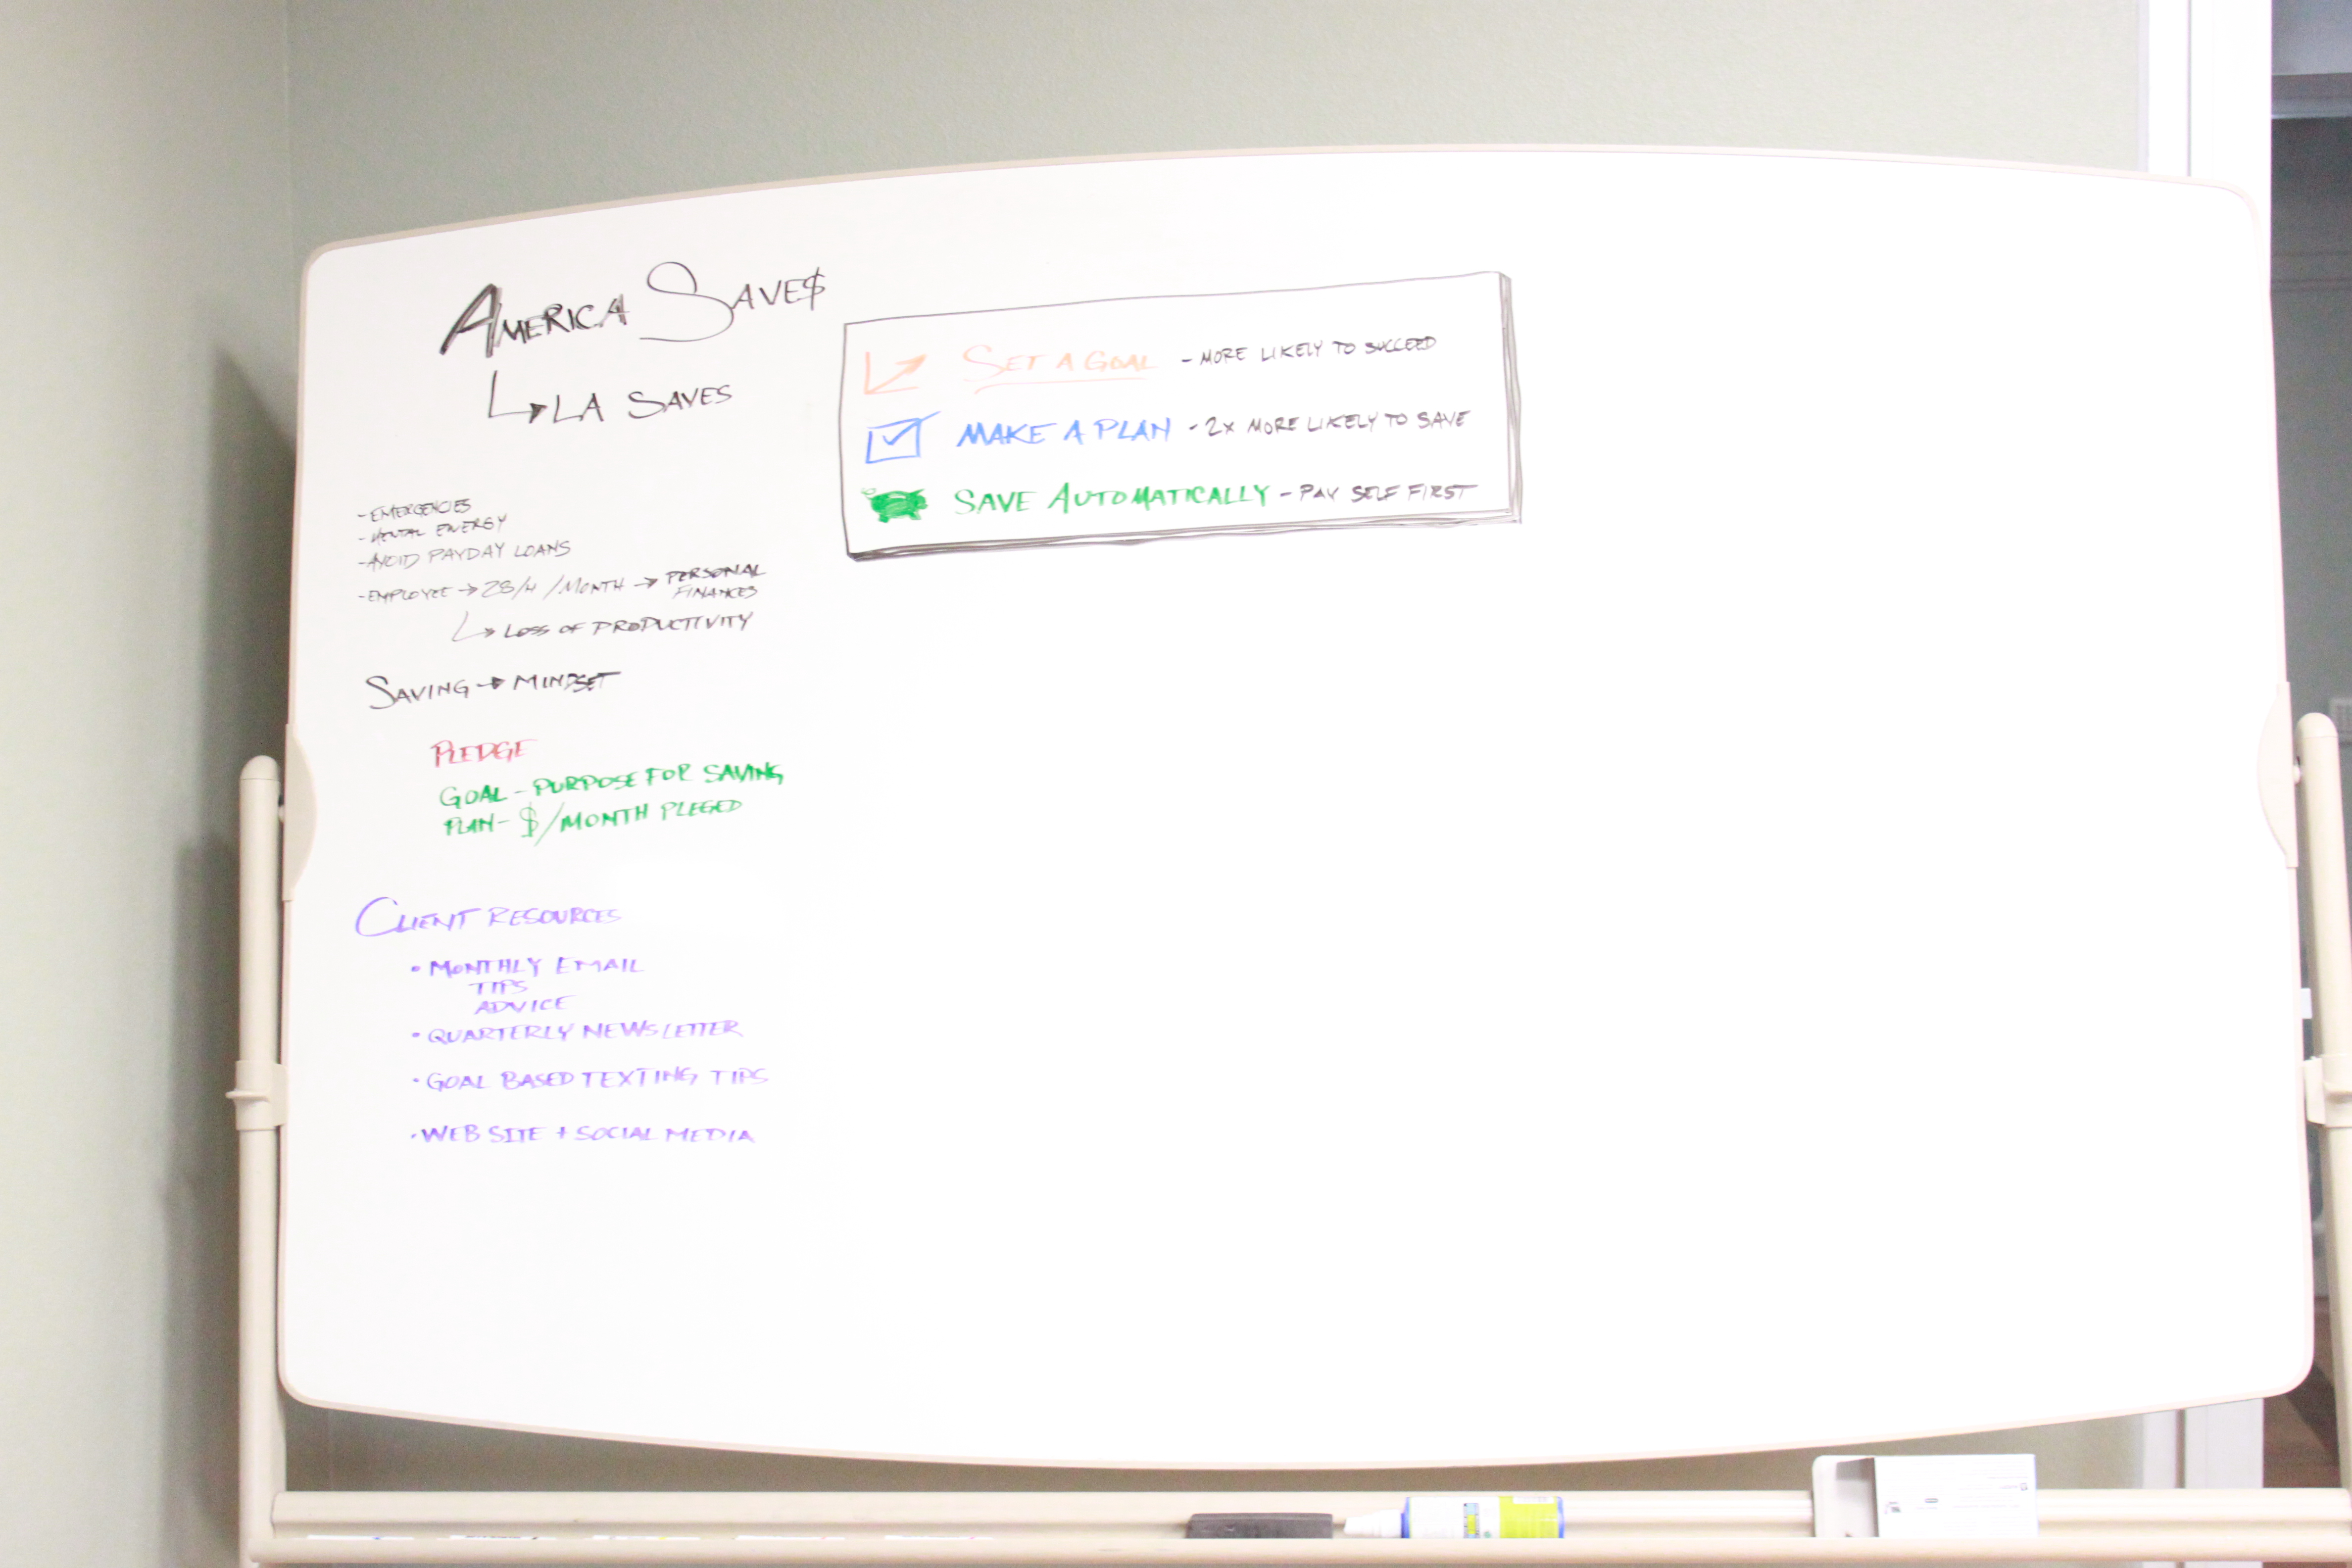 AMERICA SAVE$
LA SAVES
- EMERGENCIES
- MENTAL ENERGY
- AVOID PAYDAY LOANS
- EMPLOYEE → 28/H /MONTH → PERSONAL FINANCES
LOSS OF PRODUCTIVITY
SAVING → MINDSET
PLEDGE
GOAL - PURPOSE FOR SAVING
PLAN - $/MONTH PLEGED
CLIENT RESOURCES
• MONTHLY EMAIL
TIPS
ADVICE
• QUARTERLY NEWSLETTER
• GOAL BASED TEXTING TIPS
• WEB SITE + SOCIAL MEDIA
SET A GOAL - MORE LIKELY TO SUCCEED
MAKE A PLAN - 2x MORE LIKELY TO SAVE
SAVE AUTOMATICALLY - PAY SELF FIRST